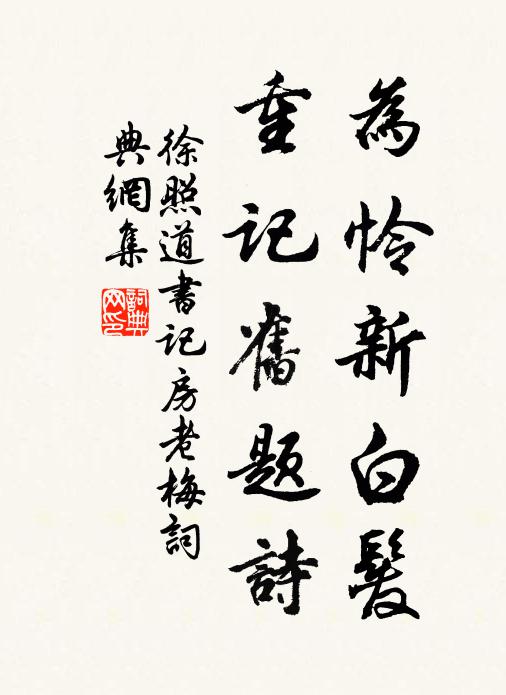 為怜新白髮
重记舊题詩
徐照道書记房老梅詞
典網集
詞典
网印